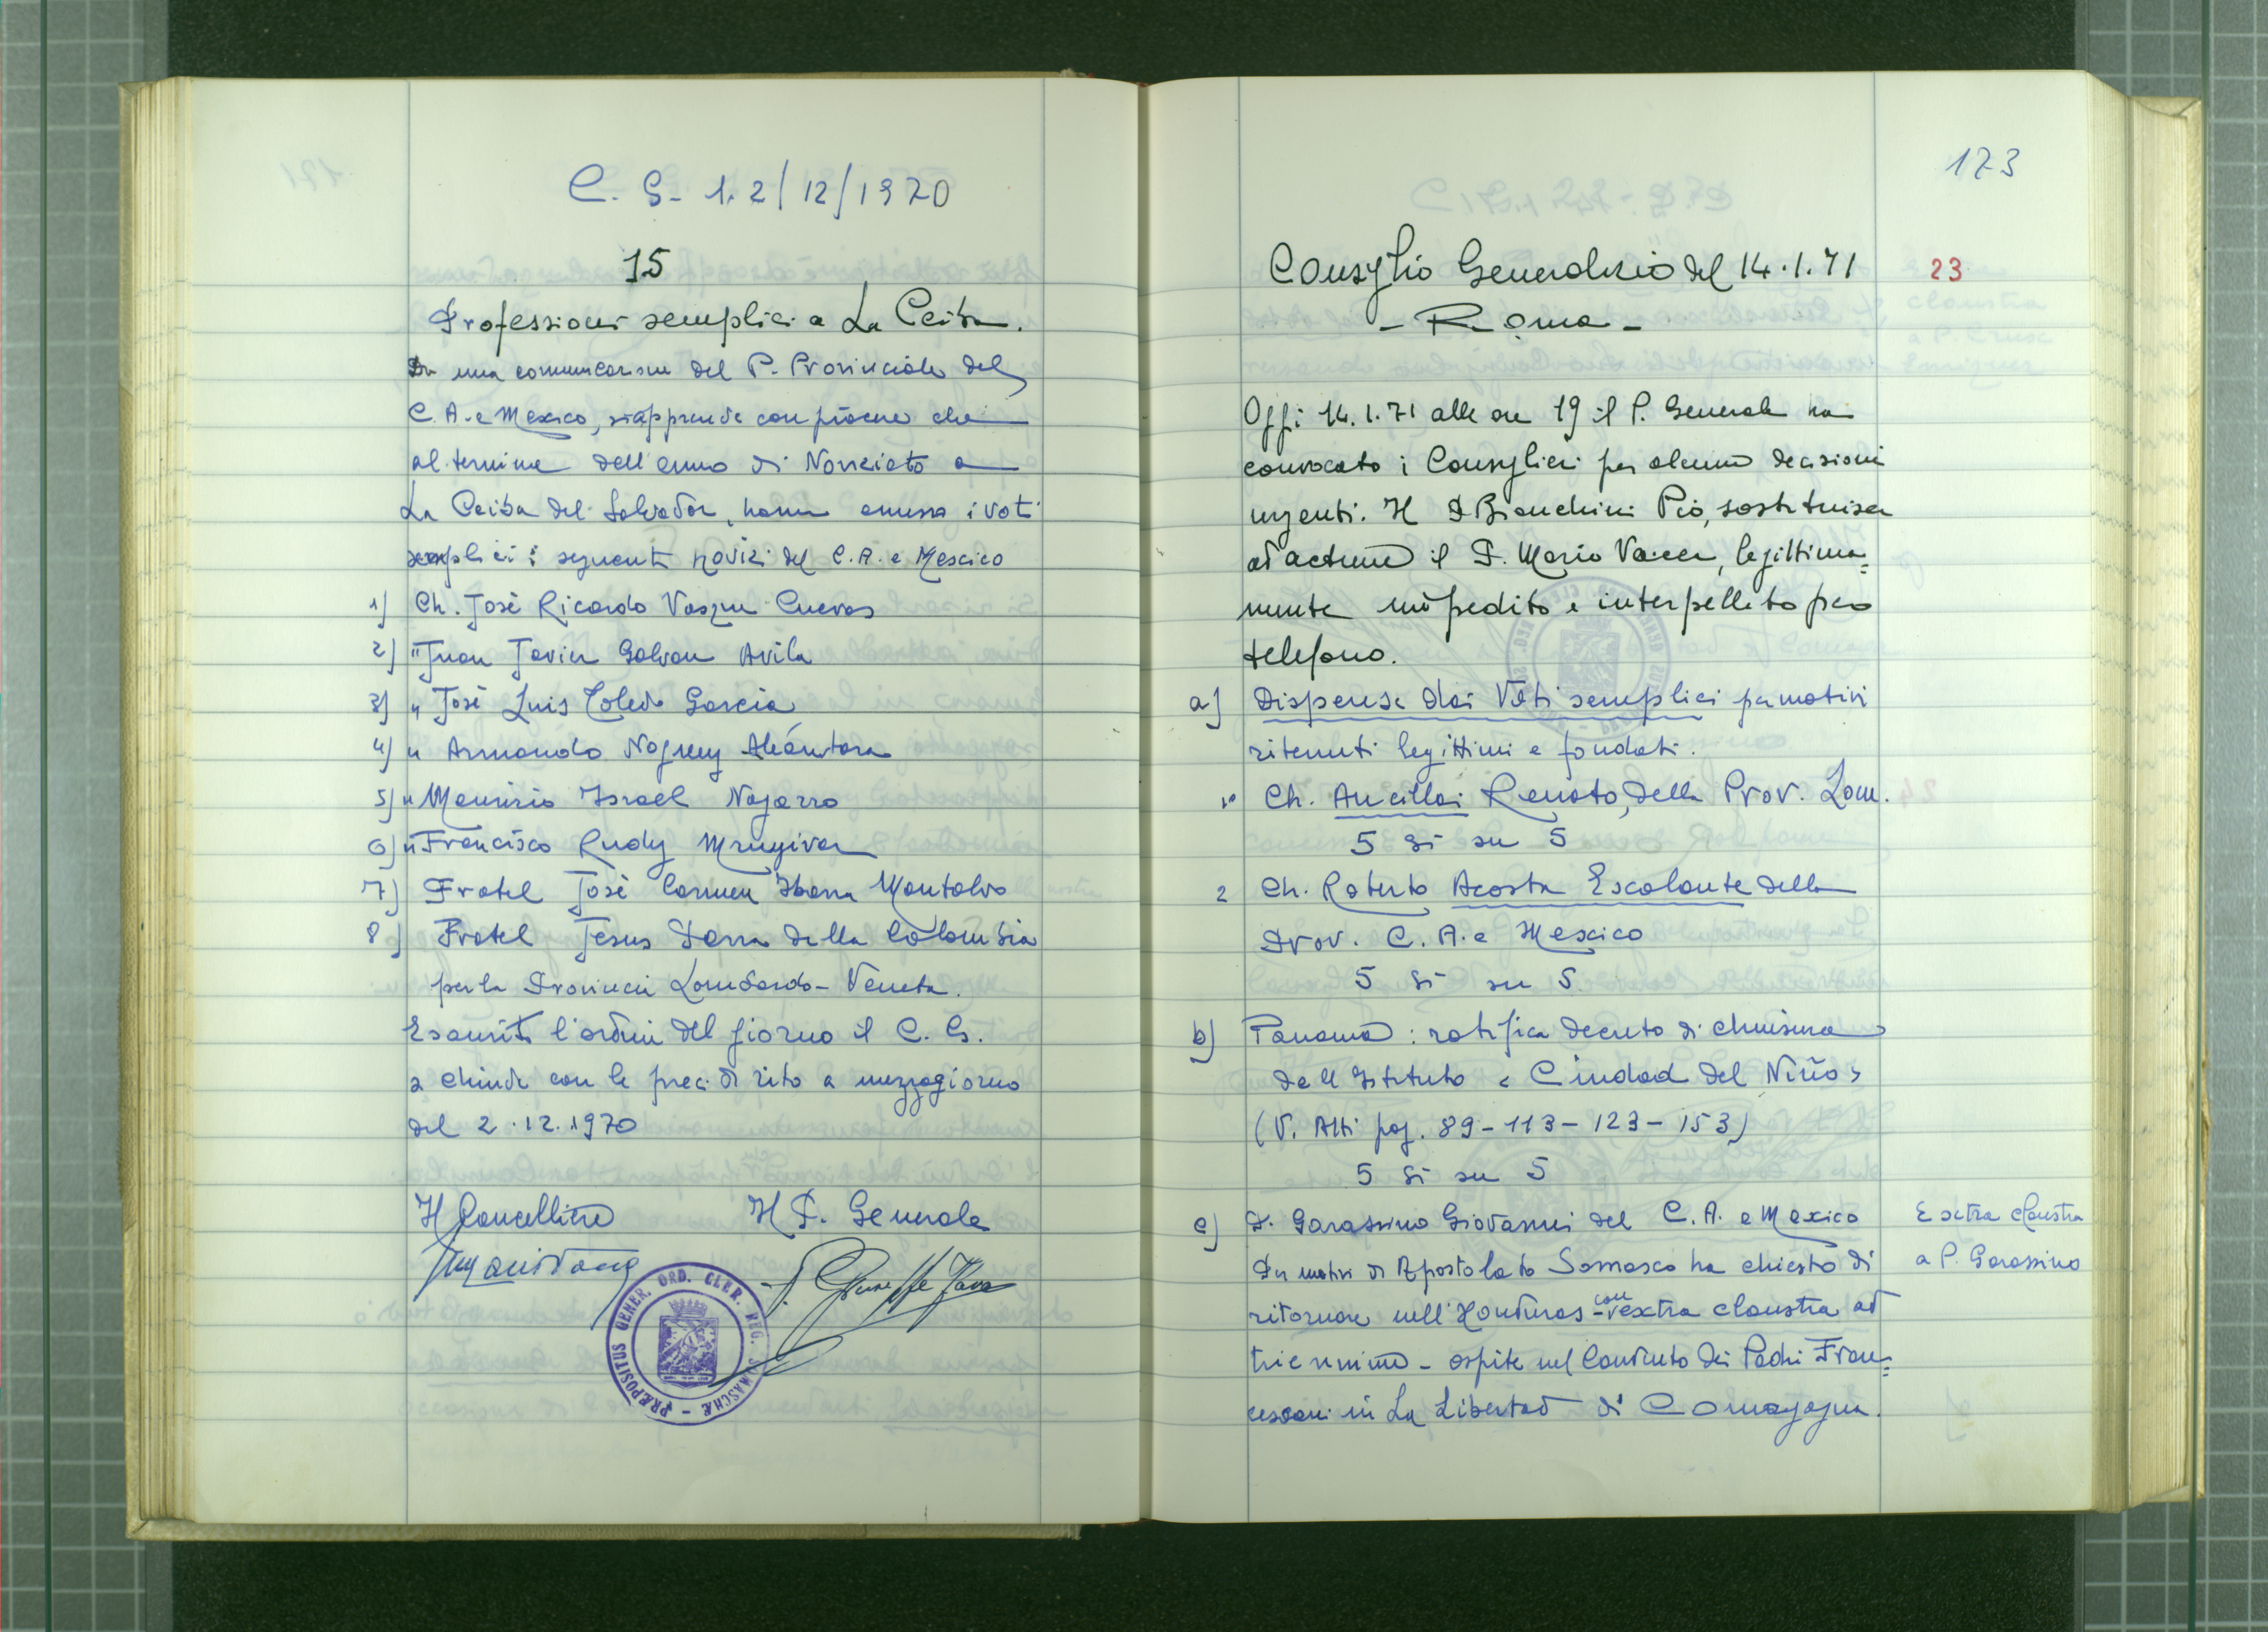 C. G. 1.2/12/1970
15
Professioni semplici a La Ceiba.
Da una comunicazione del P. Provinciale del
C. A. e Mexico, si apprende con piacere che
al termine dell'anno di Noviziato a
La Ceiba del Salvador, hanno emesso i voti
semplici i seguenti novizi del C. A. e Mexico
1) Ch. Josè Ricardo Vasquez Cuevas
2) " Juan Javier Galvan Avila
3) " Josè Luis Toledo Garcia
4) " Armando Noguez Alcántara
5) " Maurizio Israel Najarro
6) " Francisco Rudy
7) Fratel Josè Carmen Ibarra Montalvo
8) Fratel Jesus Parra della Colombia
per la Provincia Lombardo-Veneta.
Esauriti l'ordine del giorno il C. G.
si chiude con le preci di rito a mezzogiorno
del 2.12.1970
Il Cancelliere Il P. Generale
P. Giuseppe Fava
PRÆPOSITUS GENER. ORD. CLER. REG. SOMASCHÆ
173
Consiglio Generalizio del 14.1.71 23
- Roma -
Oggi 14.1.71 alle ore 19 il P. Generale ha
convocato i Consiglieri per alcune decisioni
urgenti. Il P. Bianchini Pio, sostituisce
ad actum il P. Mario Vacca, legittima=
mente impedito e interpellato per
telefono.
a) Dispensa dai Voti semplici per motivi
ritenuti legittimi e fondati.
1° Ch. Ancillai Renato, della Prov. Lom.
5 si su 5
2 Ch. Roberto Acosta Escalante della
Prov. C. A. e Mexico
5 si su 5
b) Panama: ratifica decreto di chiusura
dell'Istituto « Ciudad del Niño »
(V. Atti pag. 89-113-123-153)
5 si su 5
c) P. Garassino Giovanni del C. A. e Mexico Extra claustra
a P. Garassino
Per motivi di Apostolato Somasco ha chiesto di
ritornare nell'Honduras - con extra claustra ad
triennium - ospite nel Convento dei Padri Fran=
cescani in La Libertad di Comayagua.